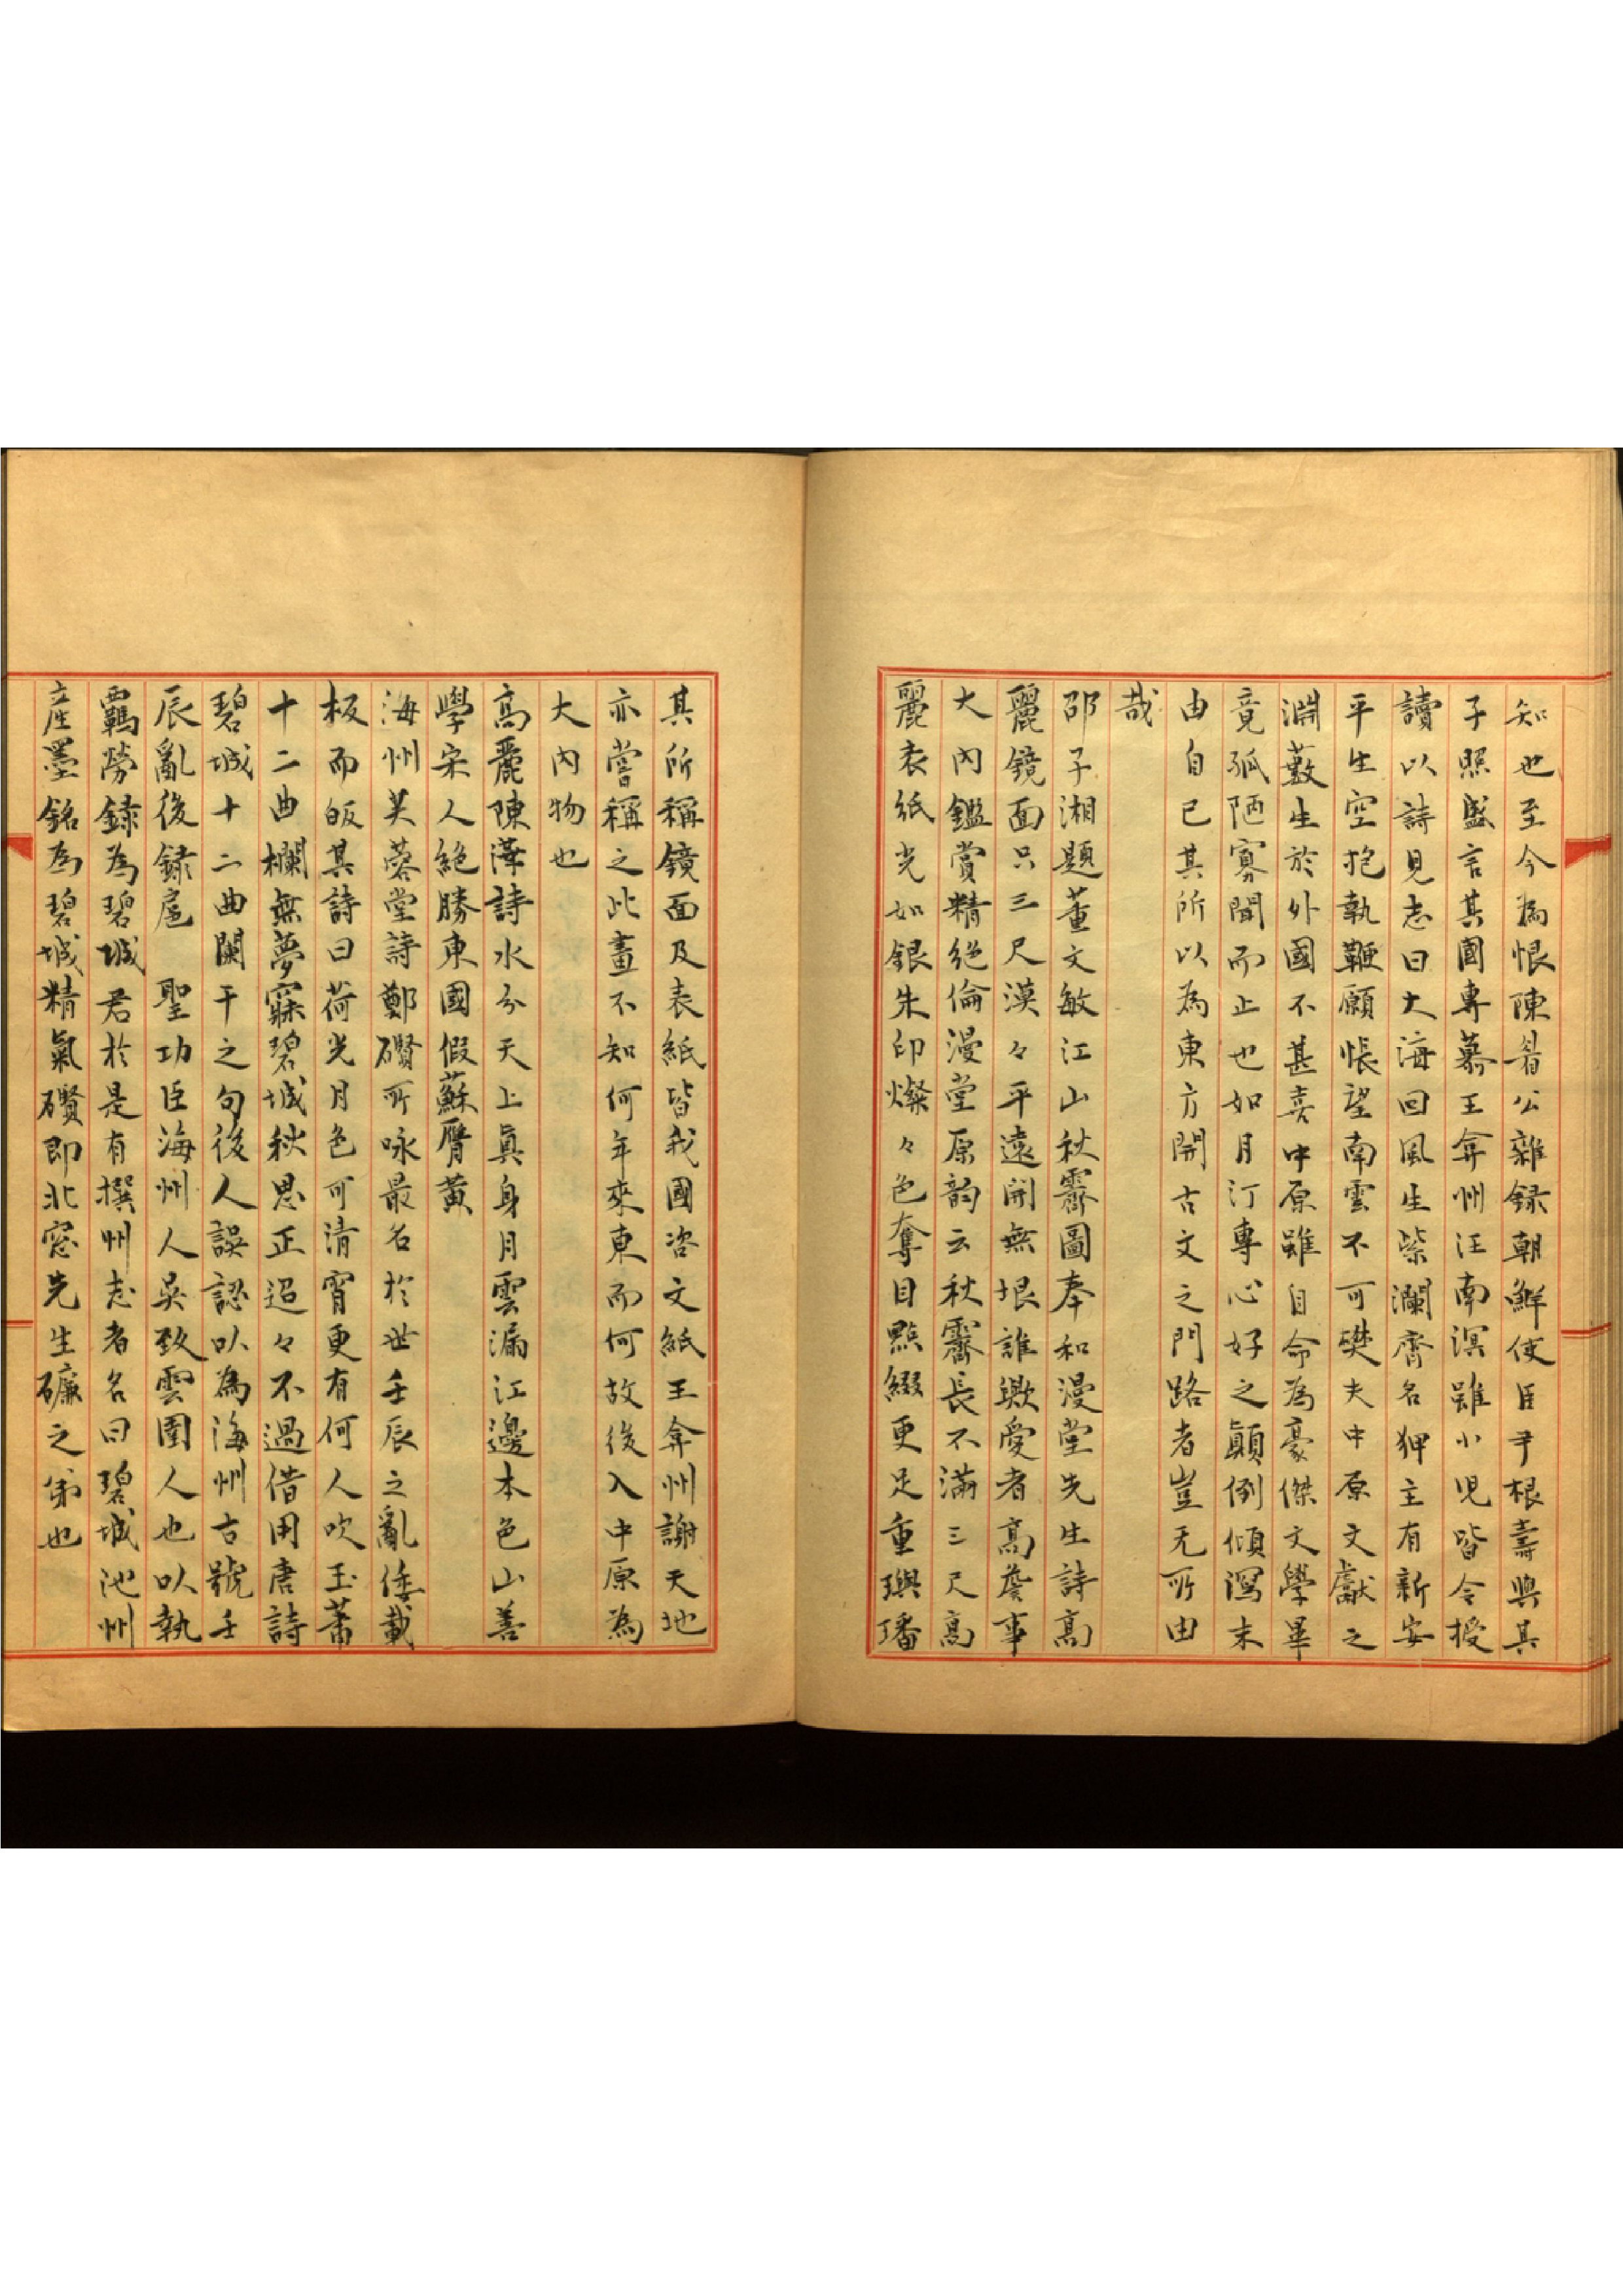 知也至今為恨陳眉公雜録朝鮮使臣尹根壽與其
子照盛言其國專慕王弇州汪南溟雖小児皆令授
讀以詩見志曰大海回風生紫瀾齋名狎主有新安
平生空抱執鞭願悵望南雲不可攀夫中原文獻之
淵藪生於外國不甚喜中原雖自命為豪傑文學畢
竟孤陋寡聞而止也如月汀專心好之顛倒傾瀉末
由自已其所以為東方開古文之門路者豈无所由
哉
邵子湘題董文敏江山秋霽圖奉和漫堂先生詩高
麗鏡面只三尺漠々平遠開無垠誰歟受者高詹事
大內鑑賞精絕倫漫堂原韵云秋霽長不滿三尺高
麗表紙光如銀朱印燦々色奪目點綴更足重璵璠
其所稱鏡面及表紙皆我國咨文紙王弇州謝天地
亦嘗稱之此畫不知何年來東而何故後入中原為
大內物也
高麗陳澕詩水分天上真身月雲漏江邊本色山善
學宋人絕勝東國假蘇贗黃
海州芙蓉堂詩鄭礥所咏最名於世壬辰之亂倭載
板而皈其詩曰荷光月色可清宵更有何人吹玉簫
十二曲欄無夢寐碧城秋思正迢々不過借用唐詩
碧城十二曲闌干之句後人誤認以為海州古號壬
辰亂後錄扈 聖功臣海州人吳致雲圉人也以執
羈勞錄為碧城君於是有撰州志者名曰碧城池州
産墨銘為碧城精氣礥即北窓先生磏之弟也